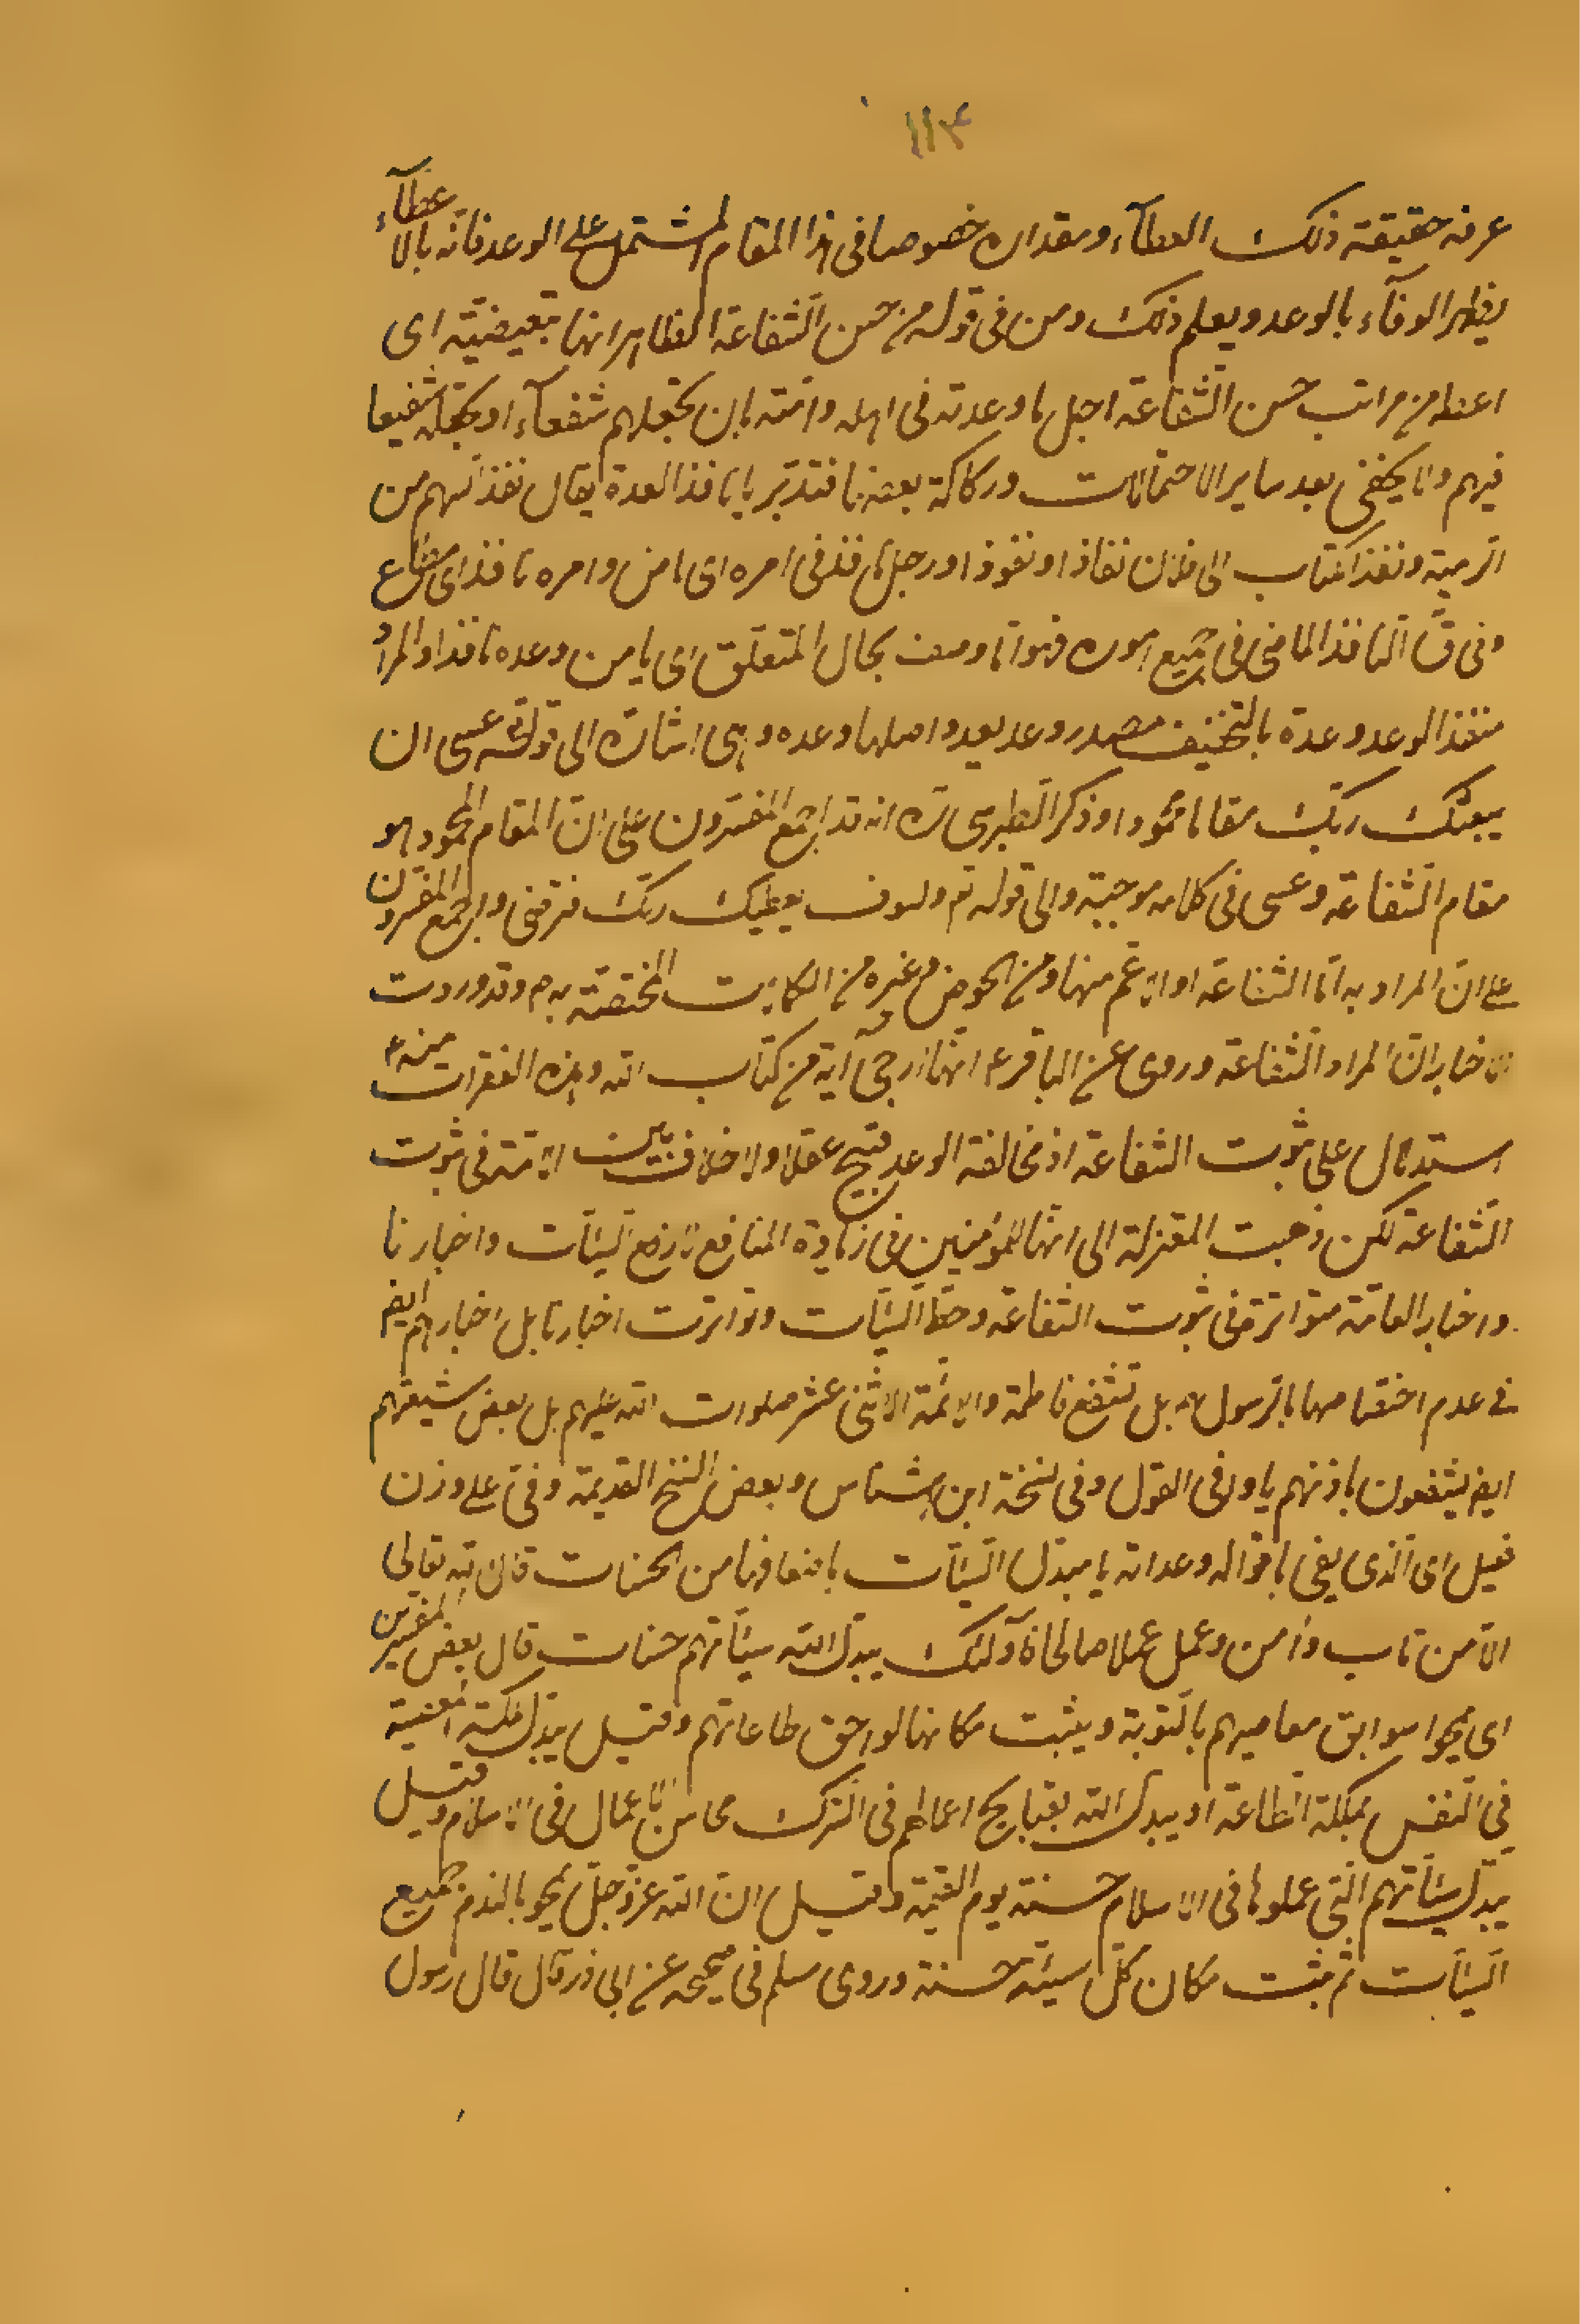 ١١٤
عرفه حقيقته ذلك العطآء ومقداره خصوصا فى هذا المقام المشتمل على الوعد فانه بالاعطآء
يظهر الوفآء بالوعد ويعلم ذلك ومن فى قوله من حسن الشفاعة الظاهر انها تبعيضيّة اى
اعطه من مراتب حسن الشفاعة اجل ما وعدته فى اهله وامّته بان تجعلهم شفعآء او تجعله شفيعا
فيهم ولا يخفى بعد ساير الاحتمالات وركاكة بعضها فتدبّر يا نافذ العدة يقال نفذ السهم من
الرمية ونفذ الكتاب الى فلان نفاذا ونفوذا ورجل نافذ فى امره اى ماض وامره نافذ اى مطاع
وفى ق النافذ الماضى فى جميع اموره فهو اما وصف بحال المتعلّق اى يا من وعده نافذ او المراد
منفذ الوعد وعدة بالتخفيف مصدر وعد يعد واصلها وعده وهى اشارة الى قوله تعالى عسى ان
يبعثك ربّك مقاما محمودا وذكر الطبرسى ره انه قد اجمع المفسّرون على انّ المقام المحمود هو
مقام الشفاعة وعسى فى كلامه موجبة والى قوله تم ولسوف يعطيك ربّك فترضى واجمع المفسرون
على انّ المراد به امّا الشفاعة او الاعم منها ومن الحوض وغيره من الكمالات المختصّة به ص وقد وردت
الاخبار انّ المراد الشفاعة وروى عن الباقر ع انّها ارجى آية من كتاب الله وهذه الفقرات منه ع
استدلال على ثبوت الشفاعة اذ مخالفة الوعد قبيح عقلا ولا خلاف بين الامّة فى ثبوت
الشفاعة لكن ذهبت المعتزلة الى انها للمؤمنين فى زيادة المنافع لا رفع السيّئات واخبارنا
واخبار العامّة متواترة فى ثبوت الشفاعة وحطّ السيّئات وتواترت اخبارنا بل اخبارهم ايض
فى عدم اختصاصها بالرسول ص بل تشفع فاطمة والائمّة الاثنى عشر صلوات الله عليهم بل بعض شيعتهم
ايض يشفعون باذنهم يا وافى القول وفى نسخة ابن اشناس وبعض النسخ القديمة وفىّ على وزن
فعيل اى الذى يفى باقواله وعداته يا مبدّل السيّئات باضعافها من الحسنات قال الله تعالى
الّا من تاب وآمن وعمل عملا صالحا فاولئك يبدّل الله سيّئاتهم حسنات قال بعض المفسّرين
اى يمحوا سوابق معاصيهم بالتوبة ويثبت مكانها لواحق طاعاتهم وقيل يبدّل ملكة المعصية
فى النفس بملكة الطاعة او يبدّل الله بقبايح اعمالهم فى الشرك محاسن الاعمال فى الاسلام وقيل
يبدّل سيّئاتهم التى عملوها فى الاسلام حسنة يوم القيمة وقيل ان الله عزّ وجلّ يمحو بالندم جميع
السيّئات ثم يثبت مكان كلّ سيّئة حسنة وروى مسلم فى صحيحه عن ابى ذر قال قال رسول